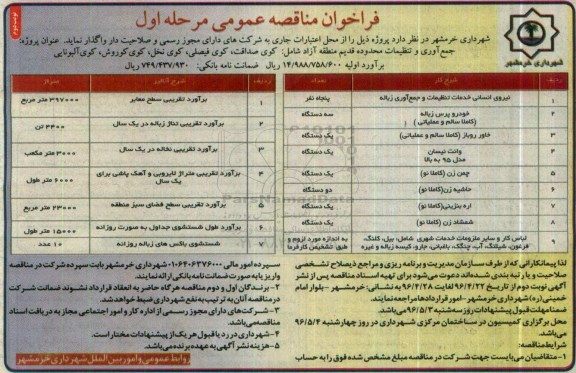 نوبت دوم
فراخوان مناقصه عمومی مرحله اول
شهرداری خرمشهر
شهرداری خرمشهر در نظر دارد پروژه ذیل را از محل اعتبارات جاری به شرکت های دارای مجوز رسمی و صلاحیت دار واگذار نماید. عنوان پروژه:
جمع آوری و تنظیفات محدوده قدیم منطقه آزاد شامل: کوی صداقت، کوی فیصلی، کوی نخل، کوی کوروش، کوی آلبونایی
برآورد اولیه ۱۴/۹۸۸/۷۵۸/۶۰۰ ریال ضمانت نامه بانکی: ۷۴۹/۴۳۷/۹۳۰ ریال
ردیف شرح کار تعداد
۱ نیروی انسانی خدمات تنظیفات و جمع‌آوری زباله پنجاه نفر
۲ خودرو پرس زباله (کاملا سالم و عملیاتی) سه دستگاه
۳ خاور روباز (کاملا سالم و عملیاتی) یک دستگاه
۴ وانت نیسان مدل ۹۵ به بالا یک دستگاه
۵ چمن زن (کاملا نو) یک دستگاه
۶ حاشیه زن (کاملا نو) دو دستگاه
۷ اره بنزینی (کاملا نو) یک دستگاه
۸ شمشاد زن (کاملا نو) یک دستگاه
۹ لباس کار و سایر ملزومات خدمات شهری شامل: بیل، کلنگ، فرغون، شیلنگ، آب، چنگک، باغبانی، جارو، کیسه زباله و غیره به اندازه مورد لزوم و طبق تشخیص کارفرما
ردیف شرح آنالیز
۱ برآورد تقریبی سطح معابر ۳۹۷۰۰۰ متر مربع
۲ برآورد تقریبی تناژ زباله در یک سال ۴۴۰۰ تن
۳ برآورد تقریبی نخاله در یک سال ۳۰۰۰ متر مکعب
۴ برآورد تقریبی متراژ لایروبی و آهک پاشی برای یک سال ۶۰۰۰ متر طول
۵ برآورد تقریبی سطح فضای سبز منطقه ۲۳۰۰۰ متر مربع
۶ برآورد طول شستشوی جداول به صورت روزانه ۱۵۰۰۰ متر طول
۷ شستشوی باکس های زباله روزانه ۱۰ عدد
لذا پیمانکارانی که از طرف سازمان مدیریت و برنامه ریزی و مراجع ذیصلاح تشخیص
صلاحیت و یا رتبه بندی شده‌اند دعوت می‌شود برای تهیه اسناد مناقصه پس از نشر
آگهی نوبت دوم از تاریخ ۹۶/۴/۲۲ لغایت ۹۶/۴/۲۸ به نشانی: خرمشهر - بلوار امام
خمینی(ره) شهرداری خرمشهر - امور قراردادها مراجعه نمایند.
ضمنا مهلت قبول پیشنهادات روز سه شنبه ۹۶/۵/۳ می‌باشد.
محل برگزاری کمیسیون در ساختمان مرکزی شهرداری در روز چهارشنبه ۹۶/۵/۴
می‌باشد.
شرایط مناقصه:
۱- متقاضیان می‌بایست جهت شرکت در مناقصه مبلغ مشخص شده فوق را به حساب
سپرده امور مالی ۰۱۰۶۴۰۶۳۷۶۰۰۰ شهرداری خرمشهر بابت سپرده شرکت در مناقصه
واریز یا به صورت ضمانت نامه بانکی ارائه نمایند.
۲- برندگان اول و دوم مناقصه هر گاه حاضر به انعقاد قرارداد نشوند ضمانت شرکت
در مناقصه آنان به ترتیب به نفع شهرداری ضبط خواهد شد.
۳- شرکت‌های دارای مجوز رسمی از اداره کار و امور اجتماعی مجاز به دریافت اسناد
مناقصه می‌باشند.
۴- شهرداری در رد یا قبول هر یک از پیشنهادات مختار است.
۵- هزینه نشر آگهی به عهده برنده می‌باشد.
روابط عمومی و امور بین الملل شهرداری خرمشهر